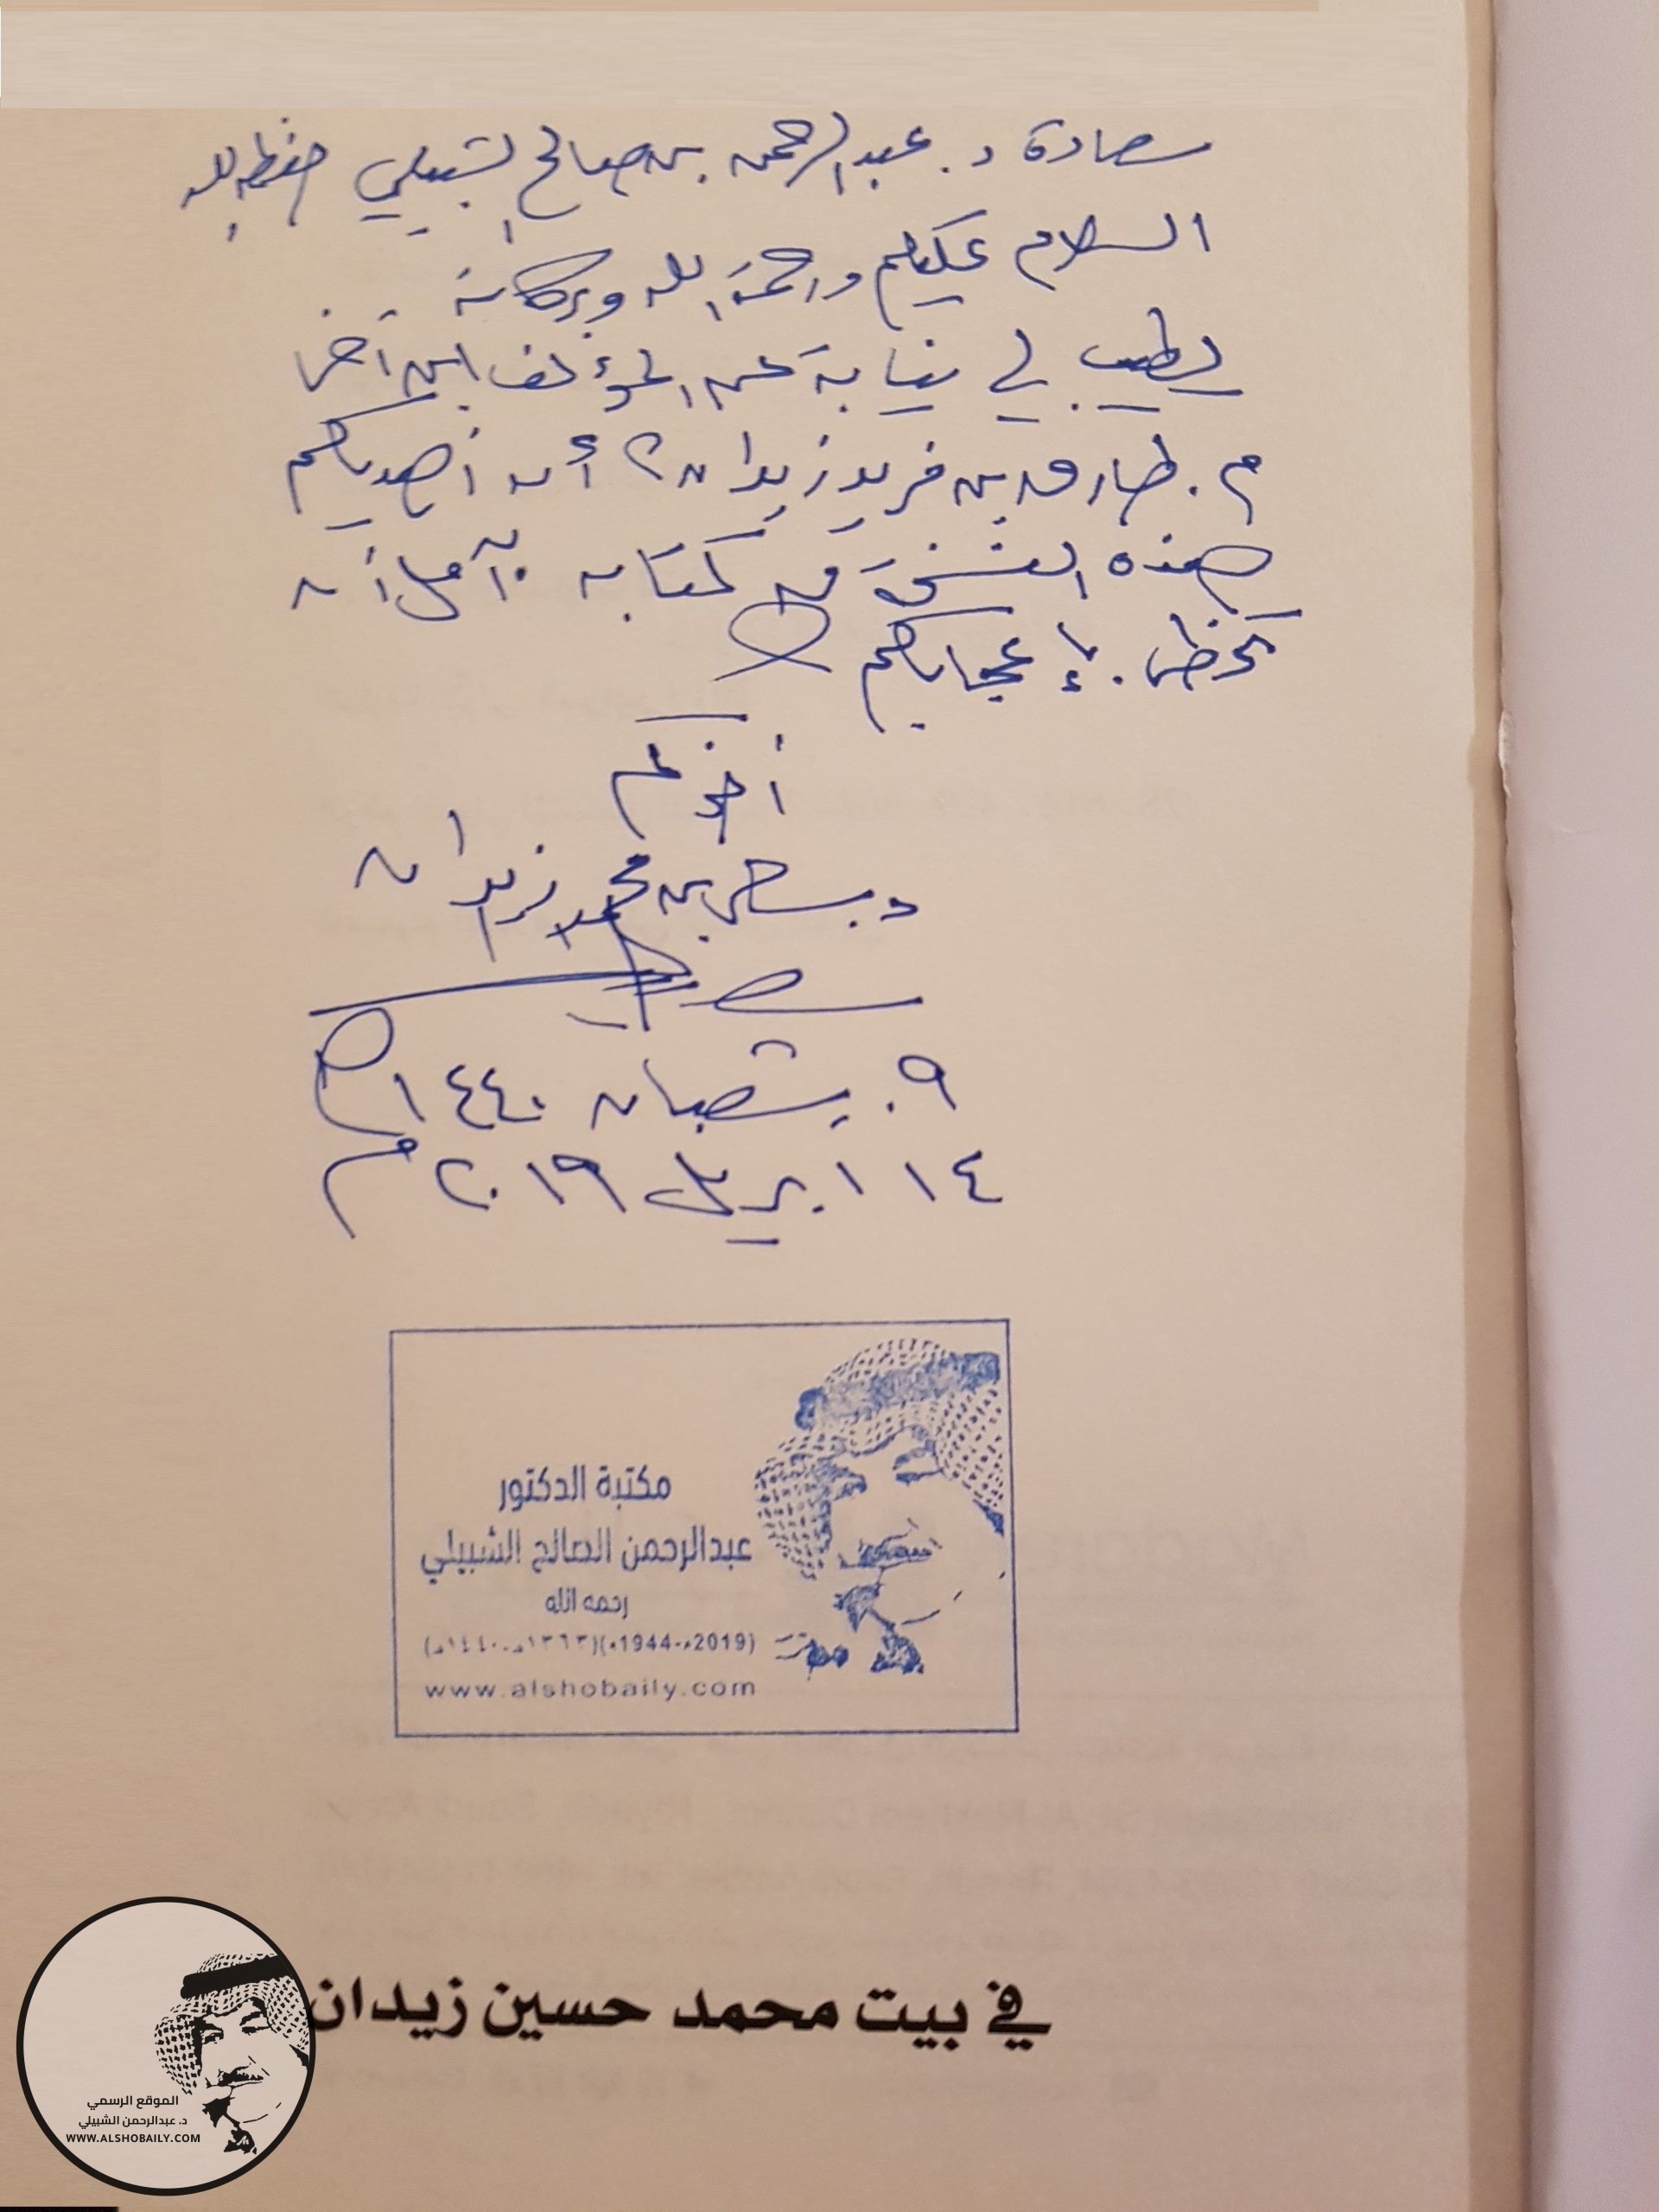 سعادة د. عبدالرحمن بن صالح الشبيلي حفظه الله
السلام عليكم ورحمة الله وبركاته
يطيب لي نيابة عن المؤلف ابن أخي
م. طارق بن فريد زيدان، أن أهديكم
هذه النسخة من كتابه آمل أن
تحظى بإعجابكم
أخوكم
د. بن محمد زيدان
٩ شعبان ١٤٤٠هـ
١٤ ابريل ٢٠١٩م
مكتبة الدكتور
عبدالرحمن الصالح الشبيلي
رحمه الله
(1944م-2019م)(١٣٦٣هـ-١٤٤٠هـ)
www.alshobaily.com
في بيت محمد حسين زيدان
الموقع الرسمي
د. عبدالرحمن الشبيلي
WWW.ALSHOBAILY.COM